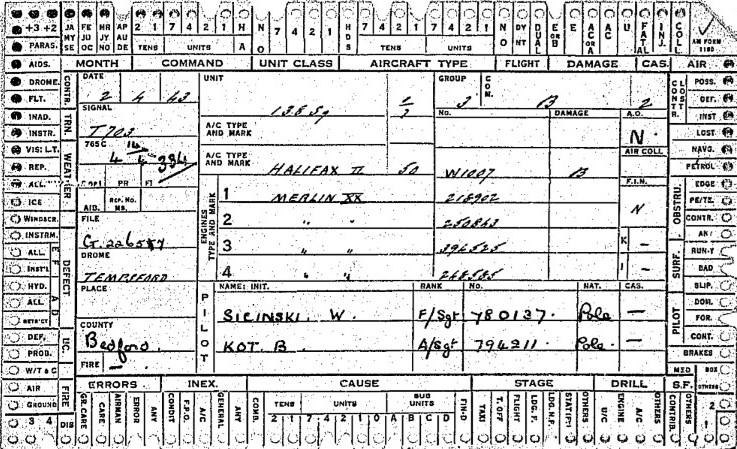 +3 +2 JA FE MR AP 2 1 7 4 2 1 H N 7 4 2 1 H 2 1 7 4 2 1 N DY DUAL E E AC AC U FATAL INJ. COLL AM FORM 1180
PARAS. MY JU JY AU TENS UNITS A O D TENS UNITS O NT OR B OR A
SE OC NO DE S
AIDS. MONTH COMMAND UNIT CLASS AIRCRAFT TYPE FLIGHT DAMAGE CAS. AIR
DROME. CONTR. DATE UNIT GROUP COM. CONTR. LOST POSS.
FLT. 2 4 43 138 Sq 3 B 2 DEF.
INAD. TRN. SIGNAL A/C TYPE AND MARK No. DAMAGE A.O. INST
INSTR. T703 N LOST
VIS: L.T. WEATHER 765C 14 AIR COLL NAVG.
REP. 4 4 384 A/C TYPE AND MARK HALIFAX II W1007 B PETROL
ALL. PR FI ENGINES TYPE AND MARK 1 MERLIN XX 218902 F.I.N. OBSTRU. EDGE
ICE AID. REP. No. MS. N PE/TE.
WINDSCR. FILE 2 " " 250843 CONTR.
INSTRM. DEFECT 3 " " 394525 K — SURF. AN/
ALL. DROME RUN-Y
INST'L TEMPSFORD 4 " " 268585 I — BAD
HYD. PLACE PILOT NAME: INIT. RANK No. NAT. CAS. SLIP.
ALL. SICINSKI. W. F/Sgt 780137. Pole — PILOT DOB.
COUNTY FOR.
DEF. UC. Bedford. KOT. B A/Sgt 794211 Pole — CONT.
PROB. FIRE — BRAKES
W/T & C MED BOX
AIR FIRE ERRORS INEX. CAUSE STAGE DRILL S.F. OTHERS
GROUND GR. CARE CARE AIRMAN ERROR ANY CONDIT F.P.O. A/C GENERAL ANY COMB. TENS UNITS SUB UNITS FIN-D TAXI T. OFF FLIGHT LDG. F. LDG. N.F. OTHERS U/C ENGINE A/C OTHERS CONTRIB. OTHERS 2
3 4 DIS 2 1 7 4 2 1 0 A B C D 1